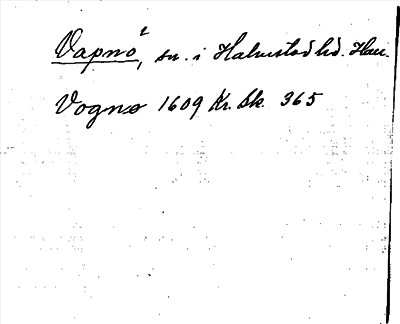 Vapnö², sn. i Halmstad hd. Hall.
Vognø 1609 Kr. Sk. 365